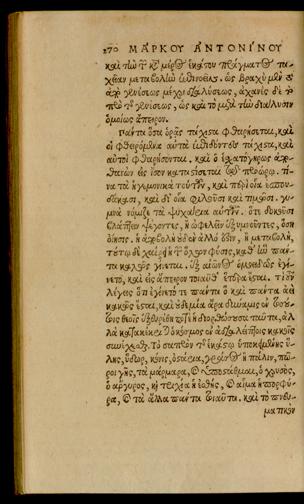 270 ΜΑΡΚΟΥ ΑΝΤΩΝΙΝΟΥ
καὶ τὴν τῶν κατὰ μέρος ἑκάστου πράγματος τα-
χεῖαν μεταβολὴν ἐπινοεῖν. ὡς βραχὺ μὲν τὸ
ἀπὸ γενέσεως μέχρι διαλύσεως, ἀχανὲς δὲ τὸ
πρὸ τῆς γενέσεως, ὡς καὶ τὸ μετὰ τὴν διάλυσιν
ὁμοίως ἄπειρον.
Πάντα ὅσα ὁρᾷς τάχιστα φθαρήσεται, καὶ
οἱ φθειρόμενα αὐτὰ ἐπιδόντες τάχιστα, καὶ
αὐτοὶ φθαρήσονται. καὶ ὁ ἐσχατόγηρως ἀπο-
θανὼν εἰς ἴσον καταστήσεται τῷ προώρῳ. τί-
να τὰ ἡγεμονικὰ τούτων, καὶ περὶ οἷα ἐσπου-
δάκασι, καὶ δι' οἷα φιλοῦσι καὶ τιμῶσι. γυ-
μνὰ νόμιζε τὰ ψυχάρια αὐτῶν. ὅτε δοκοῦσι
βλάπτειν ψέγοντες, ἢ ὠφελεῖν ἐξυμνοῦντες, ὅση
οἴησις. ἡ ἀποβολὴ οὐδὲν ἄλλο ἐστὶν, ἢ μεταβολή,
τούτῳ δὲ χαίρει ἡ τῶν ὅλων φύσις, καθ' ἣν πάν-
τα καλῶς γίνεται. ἐξ αἰῶνος ὁμοειδῶς ἐγί-
νετο, καὶ εἰς ἄπειρον τοιαῦθ' ἕτερα ἔσται. τί οὖν
λέγεις ὅτι ἐγένετό τε πάντα καὶ πάντα ἀεὶ
κακῶς ἔσται, καὶ οὐδεμία ἄρα δύναμις ἐν τοσού-
τοις θεοῖς ἐξευρέθη ποτὲ ἡ διορθώσουσα ταῦτα, ἀλ-
λὰ κατακέκριται ὁ κόσμος ἐν ἀδιαλείπτοις κακοῖς
συνέχεσθαι; Τὸ σαπρὸν τῆς ἑκάστῳ ὑποκειμένης ὕ-
λης, ὕδωρ, κόνις, ὀστάρια, γράσος· ἢ πάλιν, πῶ-
ροι γῆς, τὰ μάρμαρα, καὶ ὑποστάθμαι, ὁ χρυσός,
ὁ ἄργυρος, καὶ τριχία ἡ ἐσθής, καὶ αἷμα ἡ πορφύ-
ρα, καὶ τὰ ἄλλα πάντα τοιαῦτα. καὶ τὸ πνευ-
ματικὸν